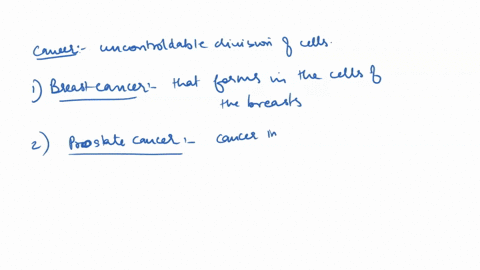 Cancer:- uncontroldable division of cells.
1) Breast cancer:- that forms in the cells of
the breasts
2) Prostate cancer:- cancer in